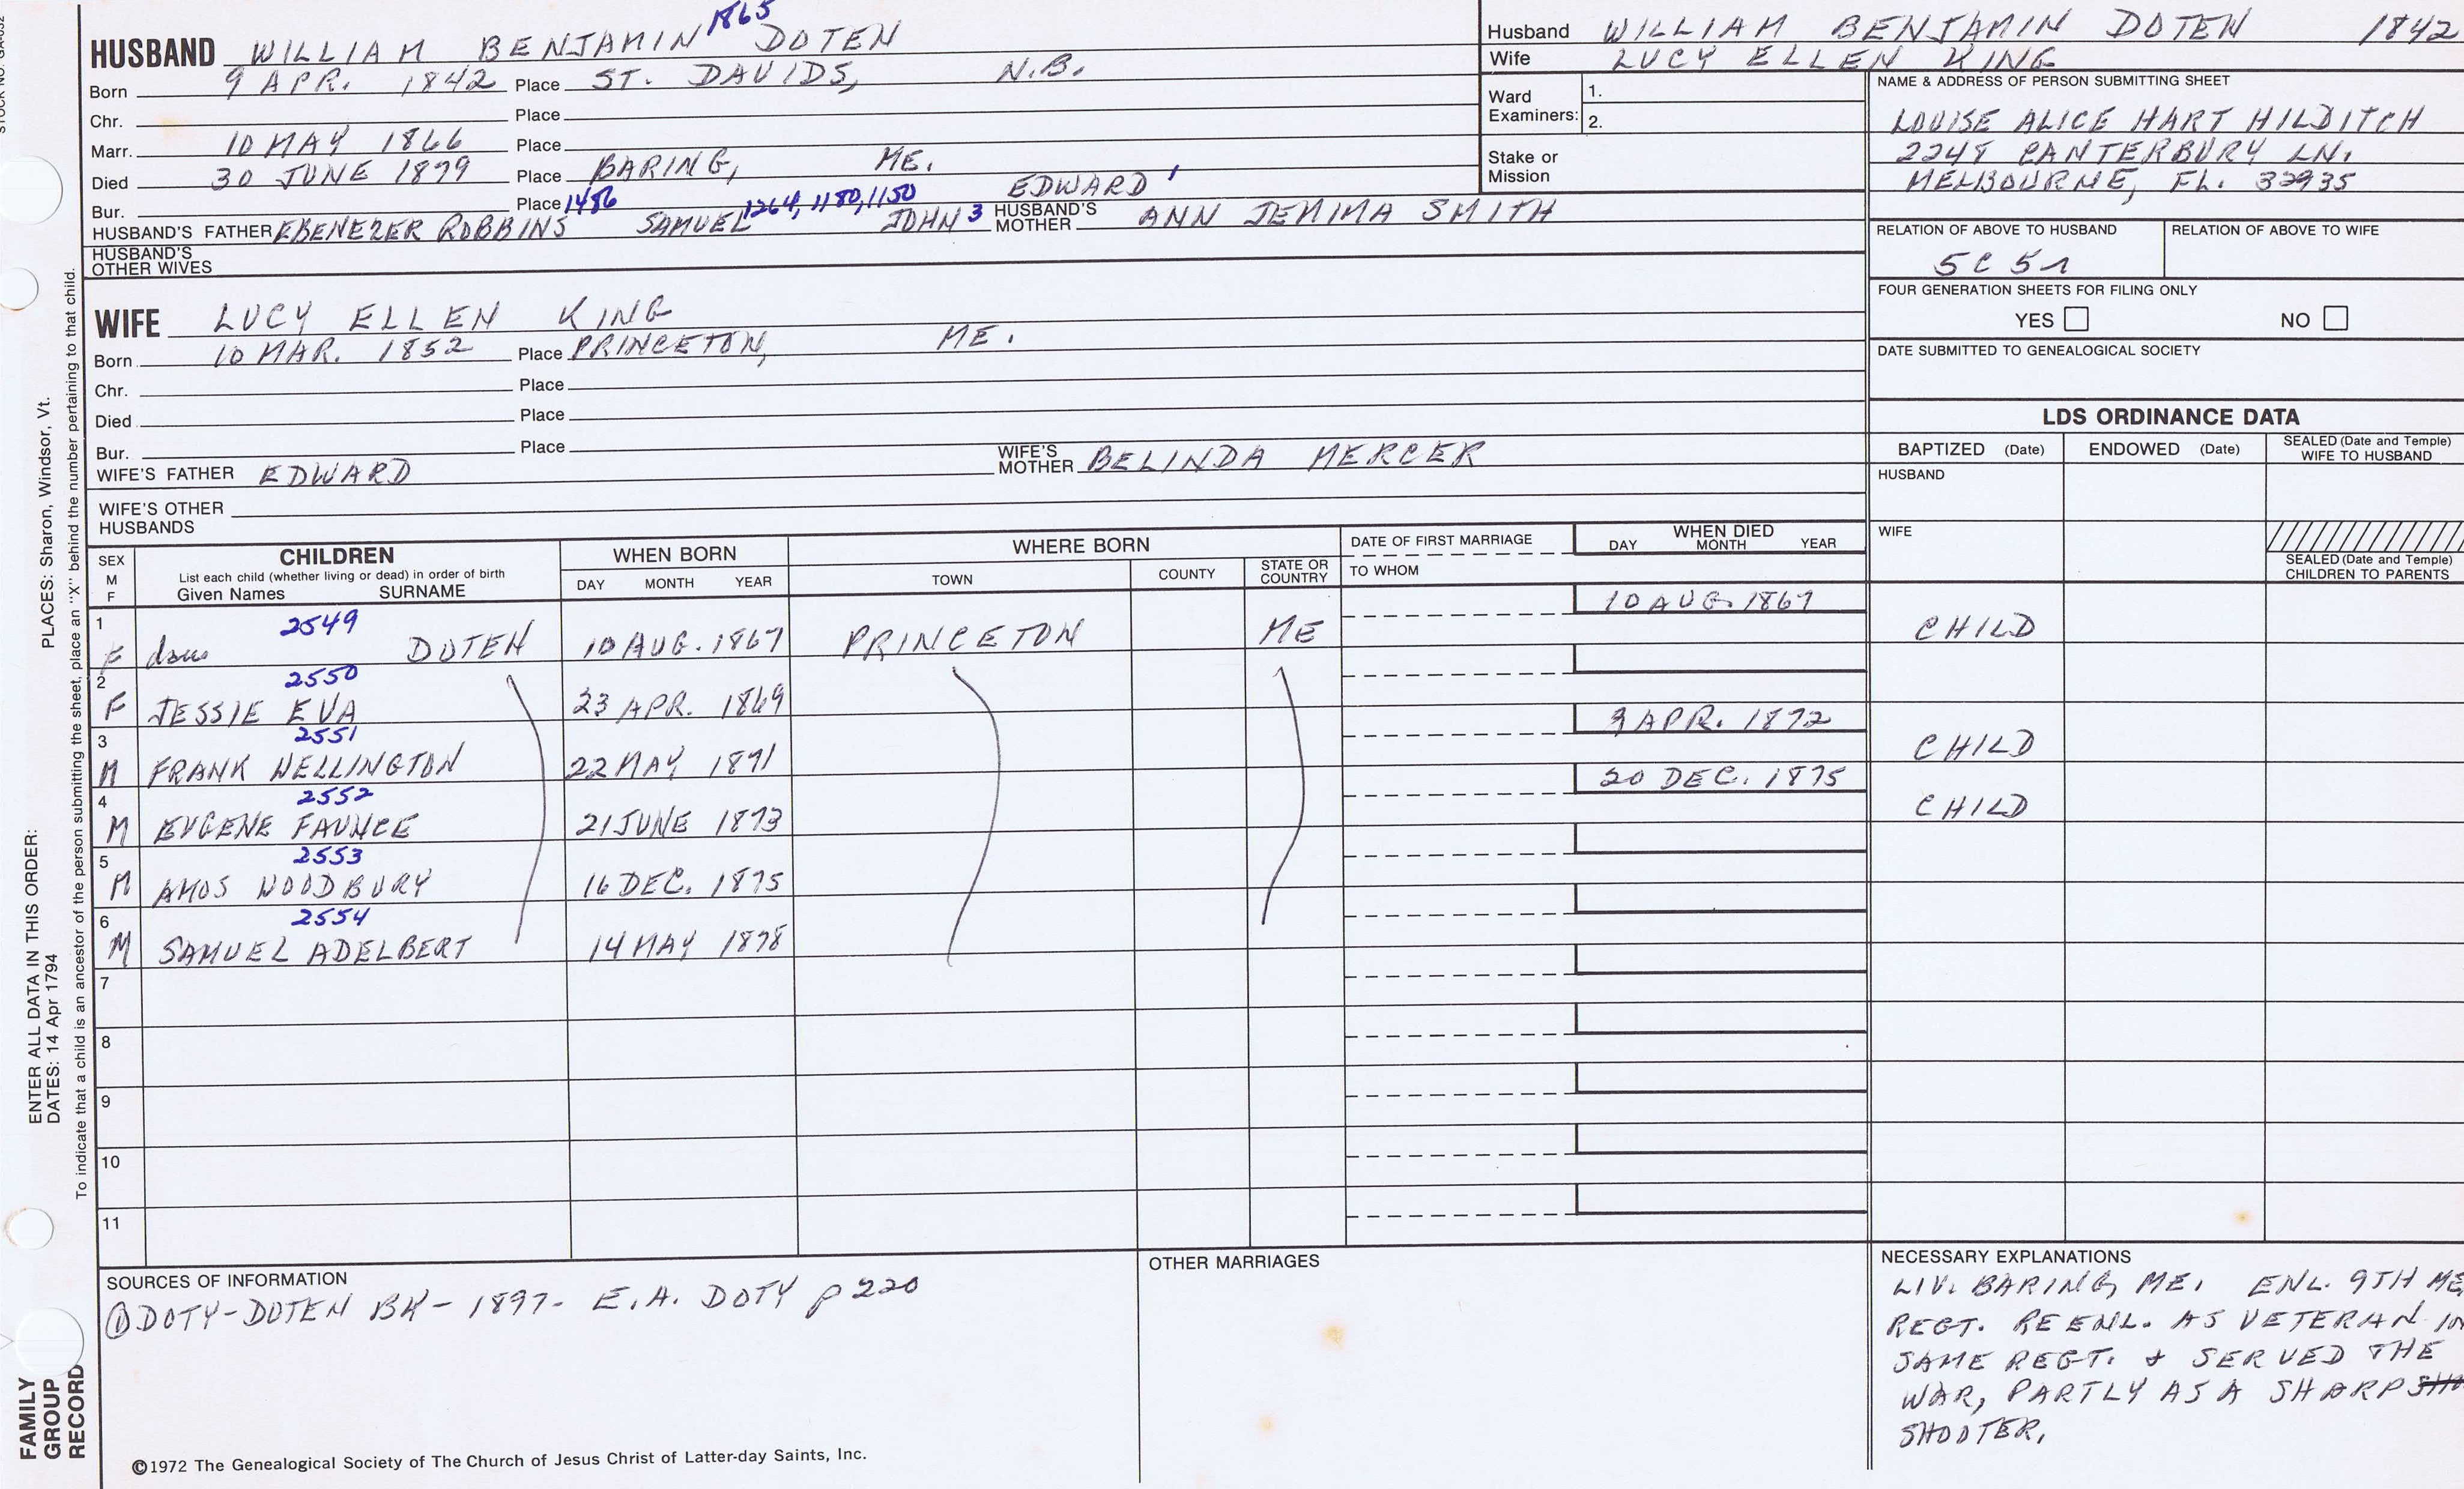 1865
HUSBAND WILLIAM BENJAMIN DOTEN
Born 9 APR. 1842 Place ST. DAVIDS, N.B.
Chr. Place
Marr. 10 MAY 1866 Place
Died 30 JUNE 1879 Place BARING, ME.
Bur. Place 1486 1264, 1180, 1150 EDWARD 1
HUSBAND'S FATHER EBENEZER ROBBINS SAMUEL JOHN 3 HUSBAND'S MOTHER ANN JEMIMA SMITH
HUSBAND'S
OTHER WIVES
WIFE LUCY ELLEN KING
Born 10 MAR. 1852 Place PRINCETON, ME.
Chr. Place
Died Place
Bur. Place
WIFE'S FATHER EDWARD WIFE'S MOTHER BELINDA MERCER
WIFE'S OTHER
HUSBANDS
Husband WILLIAM BENJAMIN DOTEN 1842
Wife LUCY ELLEN KING
Ward Examiners: 1.
2.
Stake or
Mission
NAME & ADDRESS OF PERSON SUBMITTING SHEET
LOUISE ALICE HART HILDITCH
2248 CANTERBURY LN.
MELBOURNE, FL. 32935
RELATION OF ABOVE TO HUSBAND RELATION OF ABOVE TO WIFE
5C 5r
FOUR GENERATION SHEETS FOR FILING ONLY
YES NO
DATE SUBMITTED TO GENEALOGICAL SOCIETY
LDS ORDINANCE DATA
BAPTIZED (Date) ENDOWED (Date) SEALED (Date and Temple) WIFE TO HUSBAND
HUSBAND
WIFE
SEALED (Date and Temple)
CHILDREN TO PARENTS
SEX M F CHILDREN WHEN BORN WHERE BORN DATE OF FIRST MARRIAGE WHEN DIED
List each child (whether living or dead) in order of birth
Given Names SURNAME DAY MONTH YEAR TOWN COUNTY STATE OR COUNTRY TO WHOM DAY MONTH YEAR
2549
1 F dau DOTEN 10 AUG. 1867 PRINCETON ME 10 AUG. 1867 CHILD
2550
2 F JESSIE EVA 23 APR. 1869
2551
3 M FRANK WELLINGTON 22 MAY 1871 9 APR. 1872 CHILD
2552
4 M EUGENE FAUNCE 21 JUNE 1873 20 DEC. 1875 CHILD
2553
5 M AMOS WOODBURY 16 DEC. 1875
2554
6 M SAMUEL ADELBERT 14 MAY 1878
7
8
9
10
11
SOURCES OF INFORMATION
① DOTY-DOTEN BK - 1897 - E.A. DOTY p 220
OTHER MARRIAGES
NECESSARY EXPLANATIONS
LIV. BARING, ME. ENL. 9TH ME
REGT. REENL. AS VETERAN IN
SAME REGT. & SERVED THE
WAR, PARTLY AS A SHARP
SHOOTER.
©1972 The Genealogical Society of The Church of Jesus Christ of Latter-day Saints, Inc.
ENTER ALL DATA IN THIS ORDER: PLACES: Sharon, Windsor, Vt.
DATES: 14 Apr 1794
To indicate that a child is an ancestor of the person submitting the sheet, place an "X" behind the number pertaining to that child.
FAMILY
GROUP
RECORD